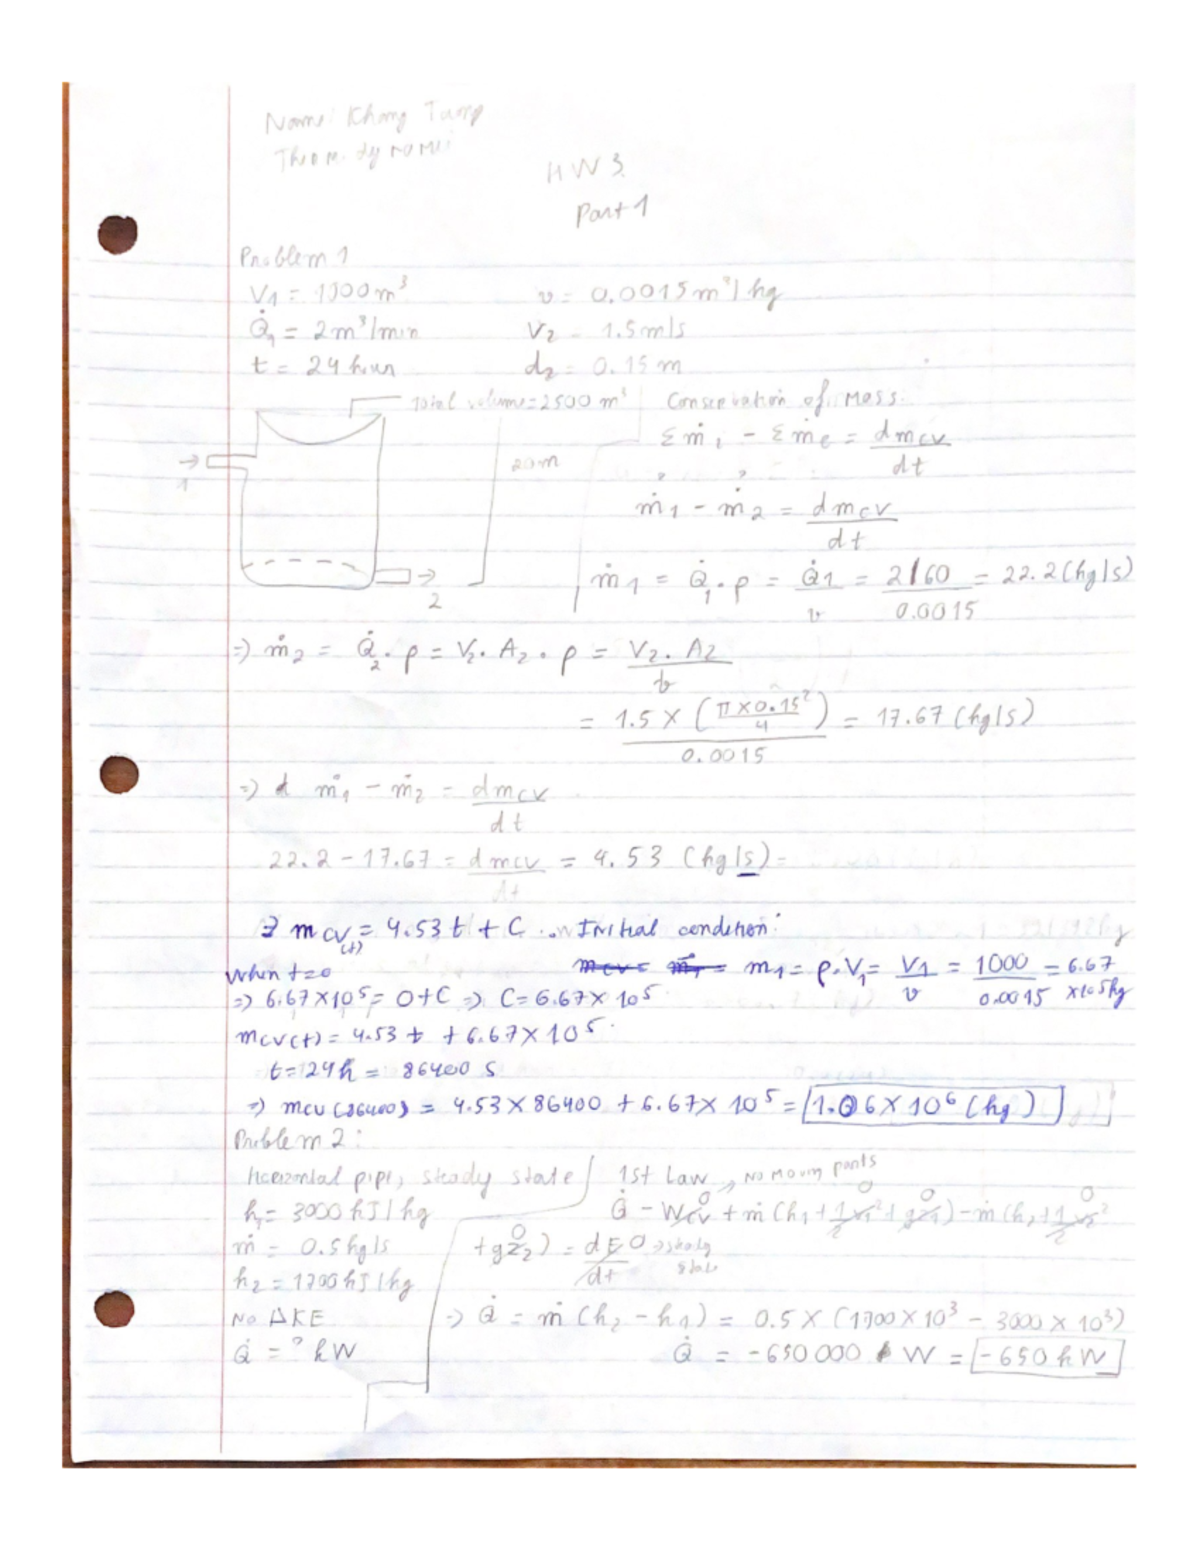 Name: Khang Tang
HW 3
Part 1
Problem 1
V1 = 1000 m³ v = 0.0015 m³/kg
Q̇1 = 2 m³/min V2 = 1.5 m/s
t = 24 hour d2 = 0.15 m
Total volume = 2500 m³
20 m
1
2
Conservation of Mass.
Σṁi - Σṁe = dmcv/dt
ṁ1 - ṁ2 = dmcv/dt
ṁ1 = Q̇1 . ρ = Q̇1/v = (2/60)/0.0015 = 22.2 (kg/s)
=> ṁ2 = Q̇2 . ρ = V2 . A2 . ρ = V2 . A2/v
= 1.5 × (π × 0.15²/4)/0.0015 = 17.67 (kg/s)
=> d ṁ1 - ṁ2 = dmcv/dt
22.2 - 17.67 = dmcv/dt = 4.53 (kg/s)
=> mcv(t) = 4.53 t + C Initial condition:
When t=0 m1 = ρ.V1 = V1/v = 1000/0.0015 = 6.67 × 10⁵ kg
=> 6.67 × 10⁵ = 0 + C => C = 6.67 × 10⁵
mcv(t) = 4.53 t + 6.67 × 10⁵
t = 24 h = 86400 s
=> mcv (86400) = 4.53 × 86400 + 6.67 × 10⁵ = 1.06 × 10⁶ (kg)
Problem 2:
Horizontal pipe, steady state
h1 = 3000 kJ/kg
ṁ = 0.5 kg/s
h2 = 1700 kJ/kg
No ΔKE
Q̇ = ? kW
1st Law → No moving parts
0 0 0 0
Q̇ - Ẇcv + ṁ (h1 + 1/2 v1² + gz1) - ṁ (h2 + 1/2 v2²
0
+ gz2) = dE/dt 0 → steady state
=> Q̇ = ṁ (h2 - h1) = 0.5 × (1700 × 10³ - 3000 × 10³)
Q̇ = -650 000 W = -650 kW